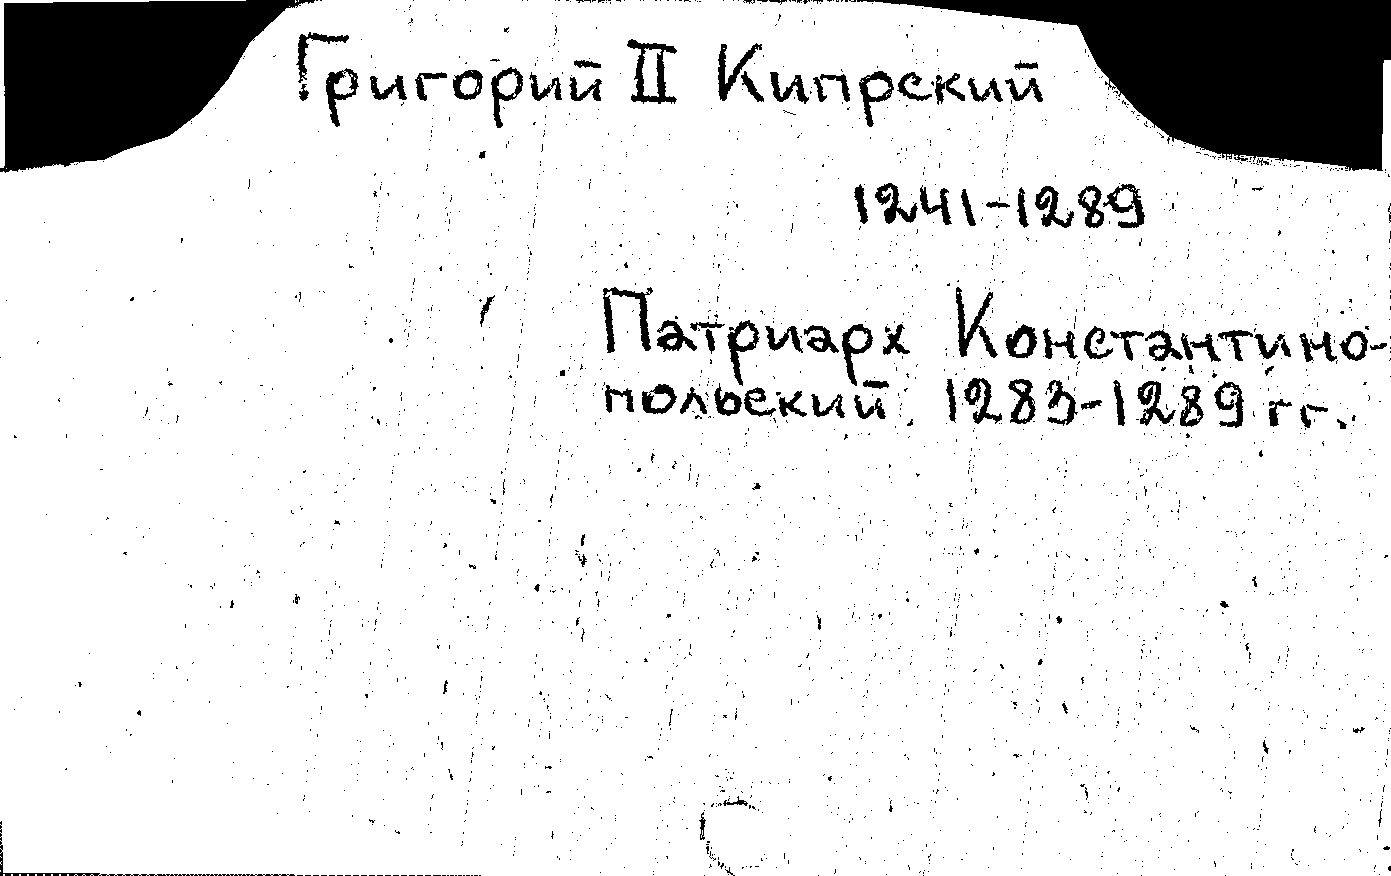 Григорий II Кипрский
1241-1289
Патриарх Константино-
польский 1283-1289 гг.